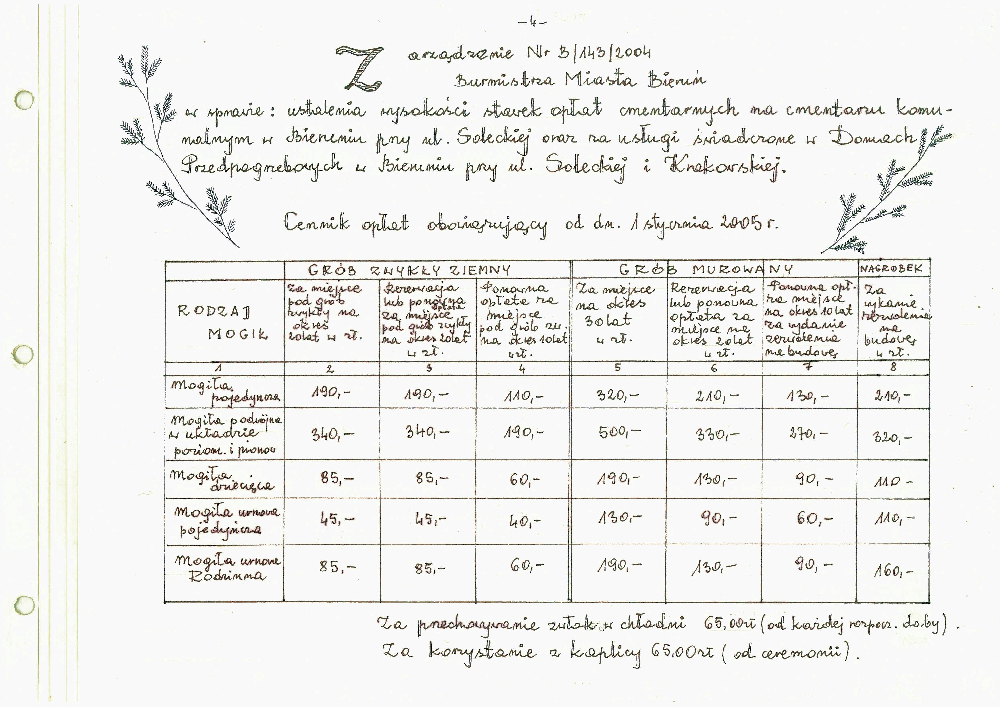 -4-
Zarządzenie Nr B/143/2004
Burmistrza Miasta Bieruń
w sprawie: ustalenia wysokości stawek opłat cmentarnych na cmentarzu komu-
nalnym w Bieruniu przy ul. Soleckiej oraz za usługi świadczone w Domach
Przedpogrzebowych w Bieruniu przy ul. Soleckiej i Krakowskiej.
Cennik opłat obowiązujący od dn. 1 stycznia 2005 r.
GRÓB ZWYKŁY ZIEMNY GRÓB MUROWANY NAGROBEK
RODZAJ MOGIŁ
Za miejsce pod grób zwykły na okres 20 lat w zł.
Rezerwacja lub ponowna opłata za miejsce pod grób zwykły na okres 20 lat w zł.
Ponowna opłata za miejsce pod grób zw. na okres 10 lat w zł.
Za miejsce na okres 30 lat w zł.
Rezerwacja lub ponowna opłata za miejsce na okres 20 lat w zł.
Ponowna opł. za miejsce na okres 10 lat za wydanie zezwolenia na budowę
Za wydanie zezwolenia na budowę w zł.
1 2 3 4 5 6 7 8
Mogiła pojedyncza 190,- 190,- 110,- 320,- 210,- 130,- 210,-
Mogiła podwójna w układzie poziom. i pionow 340,- 340,- 190,- 500,- 330,- 270,- 320,-
Mogiła dziecięca 85,- 85,- 60,- 190,- 130,- 90,- 110-
Mogiła urnowa pojedyńcza 45,- 45,- 40,- 130,- 90,- 60,- 110,-
Mogiła urnowa Rodzinna 85,- 85,- 60,- 190,- 130,- 90,- 160,-
Za przechowywanie zwłok w chłodni 65,00zł (od każdej rozpocz. doby).
Za korzystanie z kaplicy 65,00zł (od ceremonii).